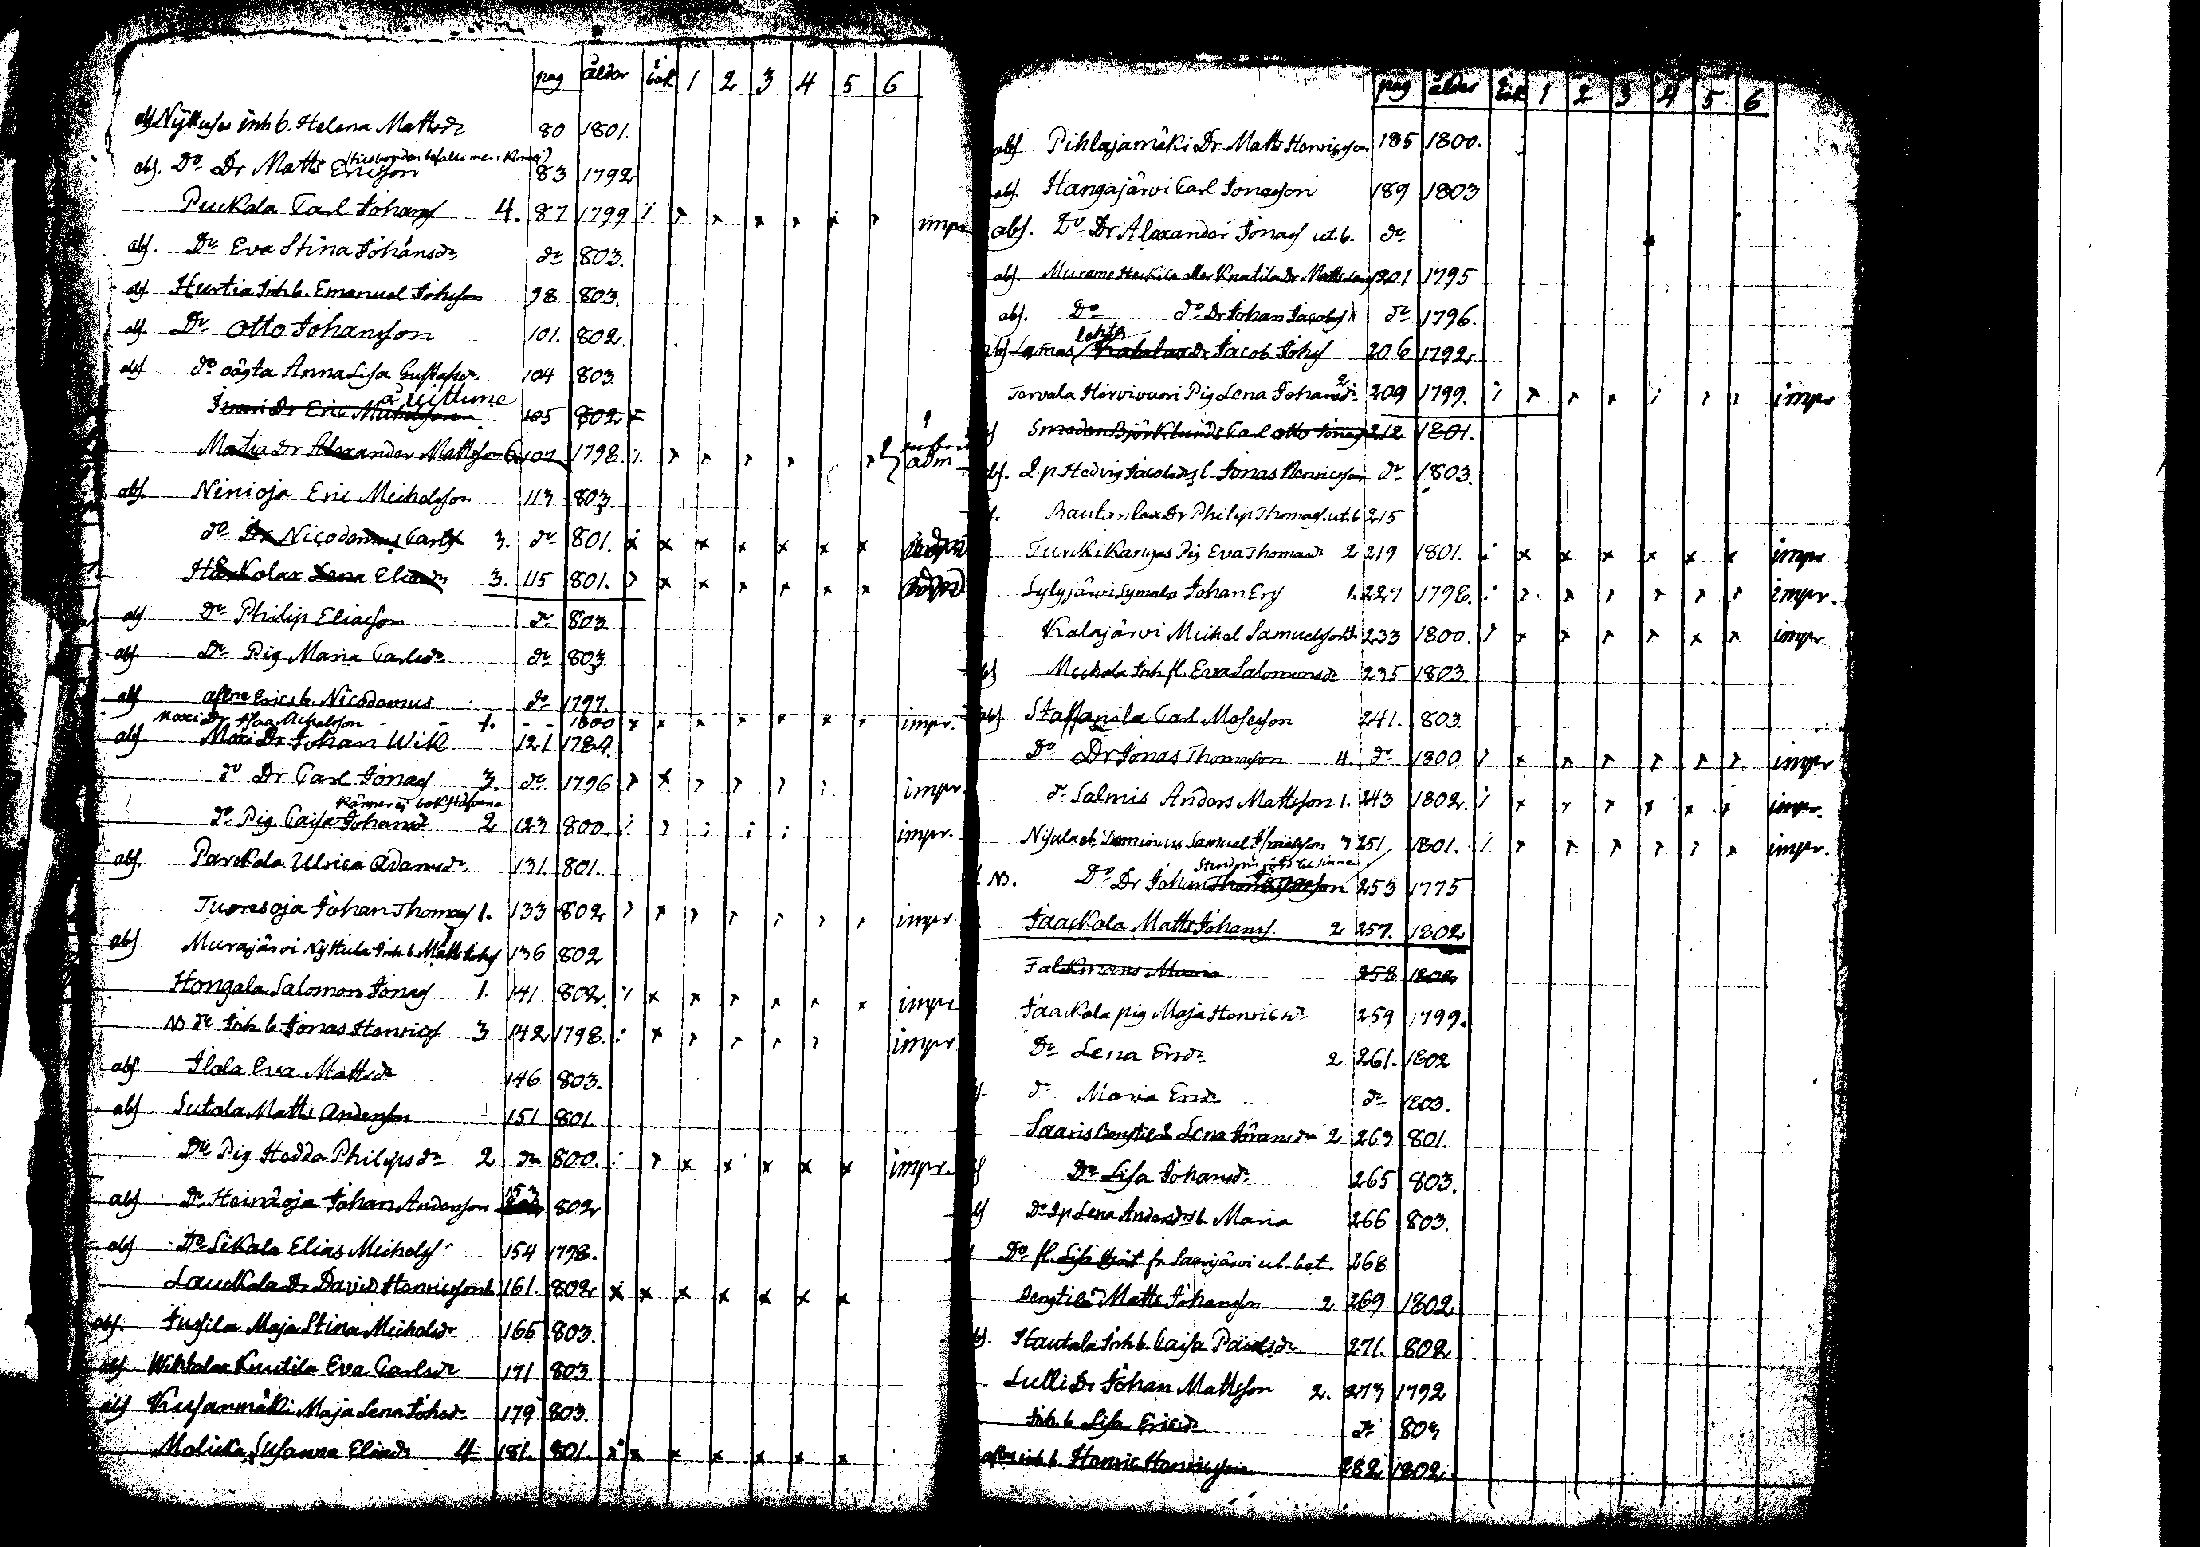 pag ålder i bok 1 2 3 4 5 6
abs Nykuses inh b. Helena Mattsdr 80 1801.
abs. Do Dr Matts Ericsson 83 1792
Puckala Carl Johans 4. 87 1799 impr
abs. Do Eva Stina Johansdr do 803.
abs Hurtia Inh b. Emanuel Johsson 98 803.
abs Do Otto Johansson 101. 802
abs do Anna Lisa Gustafsdr. 104 803.
Dr Eric 105 802
Matia Dr Alexander Mattsson 107 1798. adm
abs. Ninioja Eric Michelsson 113 803
do Dr Nicodemus Carls 3. do 801.
Lena Eliadr 3. 115 801.
abs do Philip Eliasson do 803
abs Do Pig Maria Carlsdr do 803
abs Erics b. Nicodemus do 1797.
1. - - 1800 impr.
abs Mari Dr Johan Wik 121 1784.
do Dr Carl Jonas 3. do 1796 impr.
do Pig Caisa Johansd 2 123 800 impr.
abs. Parckala Ulrica Adamsdr. 131. 801.
Tuoresoja Johan Thomas 1. 133 802 impr
abs Murajärvi Nykula Inh b. Matts 136 802
Hongala Salomon Jonas 1. 141 802. impr
NB do Inh b Jonas Henrics 3 142 1798. impr
abs Ilola Eva Mattsdr 146 803.
abs Sutala Matts Andersson 151 801
Do Pig Hedda Philipsdr 2 do 800. impr.
abs Do Heinäoja Johan Andersson 802
abs Do Sikala Elias Michels 154 1798.
Lauckala Dr David Henricsson 161. 802
abs. Jussila Maja Stina Michelsdr 165 803.
abs Knutila Eva Carlsdr 171 803
abs Kusianmäki Maja Lena Johsdr. 179 803.
Malicka Susanna Eliadr 4 181. 801.
pag ålder i bok 1 2 3 4 5 6
abs Pihlajamäki Dr Matts Henricsson 185 1800.
abs. Hangajärvi Carl Jonasson 189 1803
abs. Do Dr Alexander Jonas ut. b. do
abs. Knutila Dr Matts 201 1795
abs. Do do Dr Johan Jacobs do 1796.
Dr Jacob Johs 206 1792
Tarvala Hirvivuori Pig Lena Johansdr 2 209 1799. impr
Smeden Björklunds Carl Otto Jonas 212 1801.
abs. Hedvig Jonas Henricsson do 1803.
Dr Philip Thomas. ut. b 215
Turckikangas Pig Eva Thomasdr 2 219 1801. impr
Sylyjärvi Symala Johan Ers 1. 227 1798. impr.
Kalajärvi Michel Samuelsson 233 1800. impr
Mickola Inh fl. Eva Salomonsdr 235 1803
abs Staffanila Carl Mosesson 241. 803.
Do Dr Jonas Thomasson 4. do 1800 impr
do Salmis Anders Mattsson 1. 243 1802. impr.
Samuel 3 251. 1801. impr.
NB. Do Dr Johan 253 1775
Jaackola Matts Johans. 2 257. 1802
Falkmans Maria 258 1802
Jaackola pig Maja Henricsdr 259 1799.
Do Lena Ersdr 2 261. 1802
do Maria Ersdr do 1803.
Saaris Lena Göransdr 2 263 801.
Do Lisa Johansdr. 265 803.
Do Lena Andersd b Maria 266 803.
Do fl. Lisa fr Saarijärvi ut. bet. 268
Bengtilä Matts Johansson 2 269 1802
Hautala Inh b. Caisa Paulsdr 271. 802
Lulli Dr Johan Mattsson 2. 273 1792
Inh b Lisa Ericsdr do 803
inh b Henric Henricsson 282 1802.